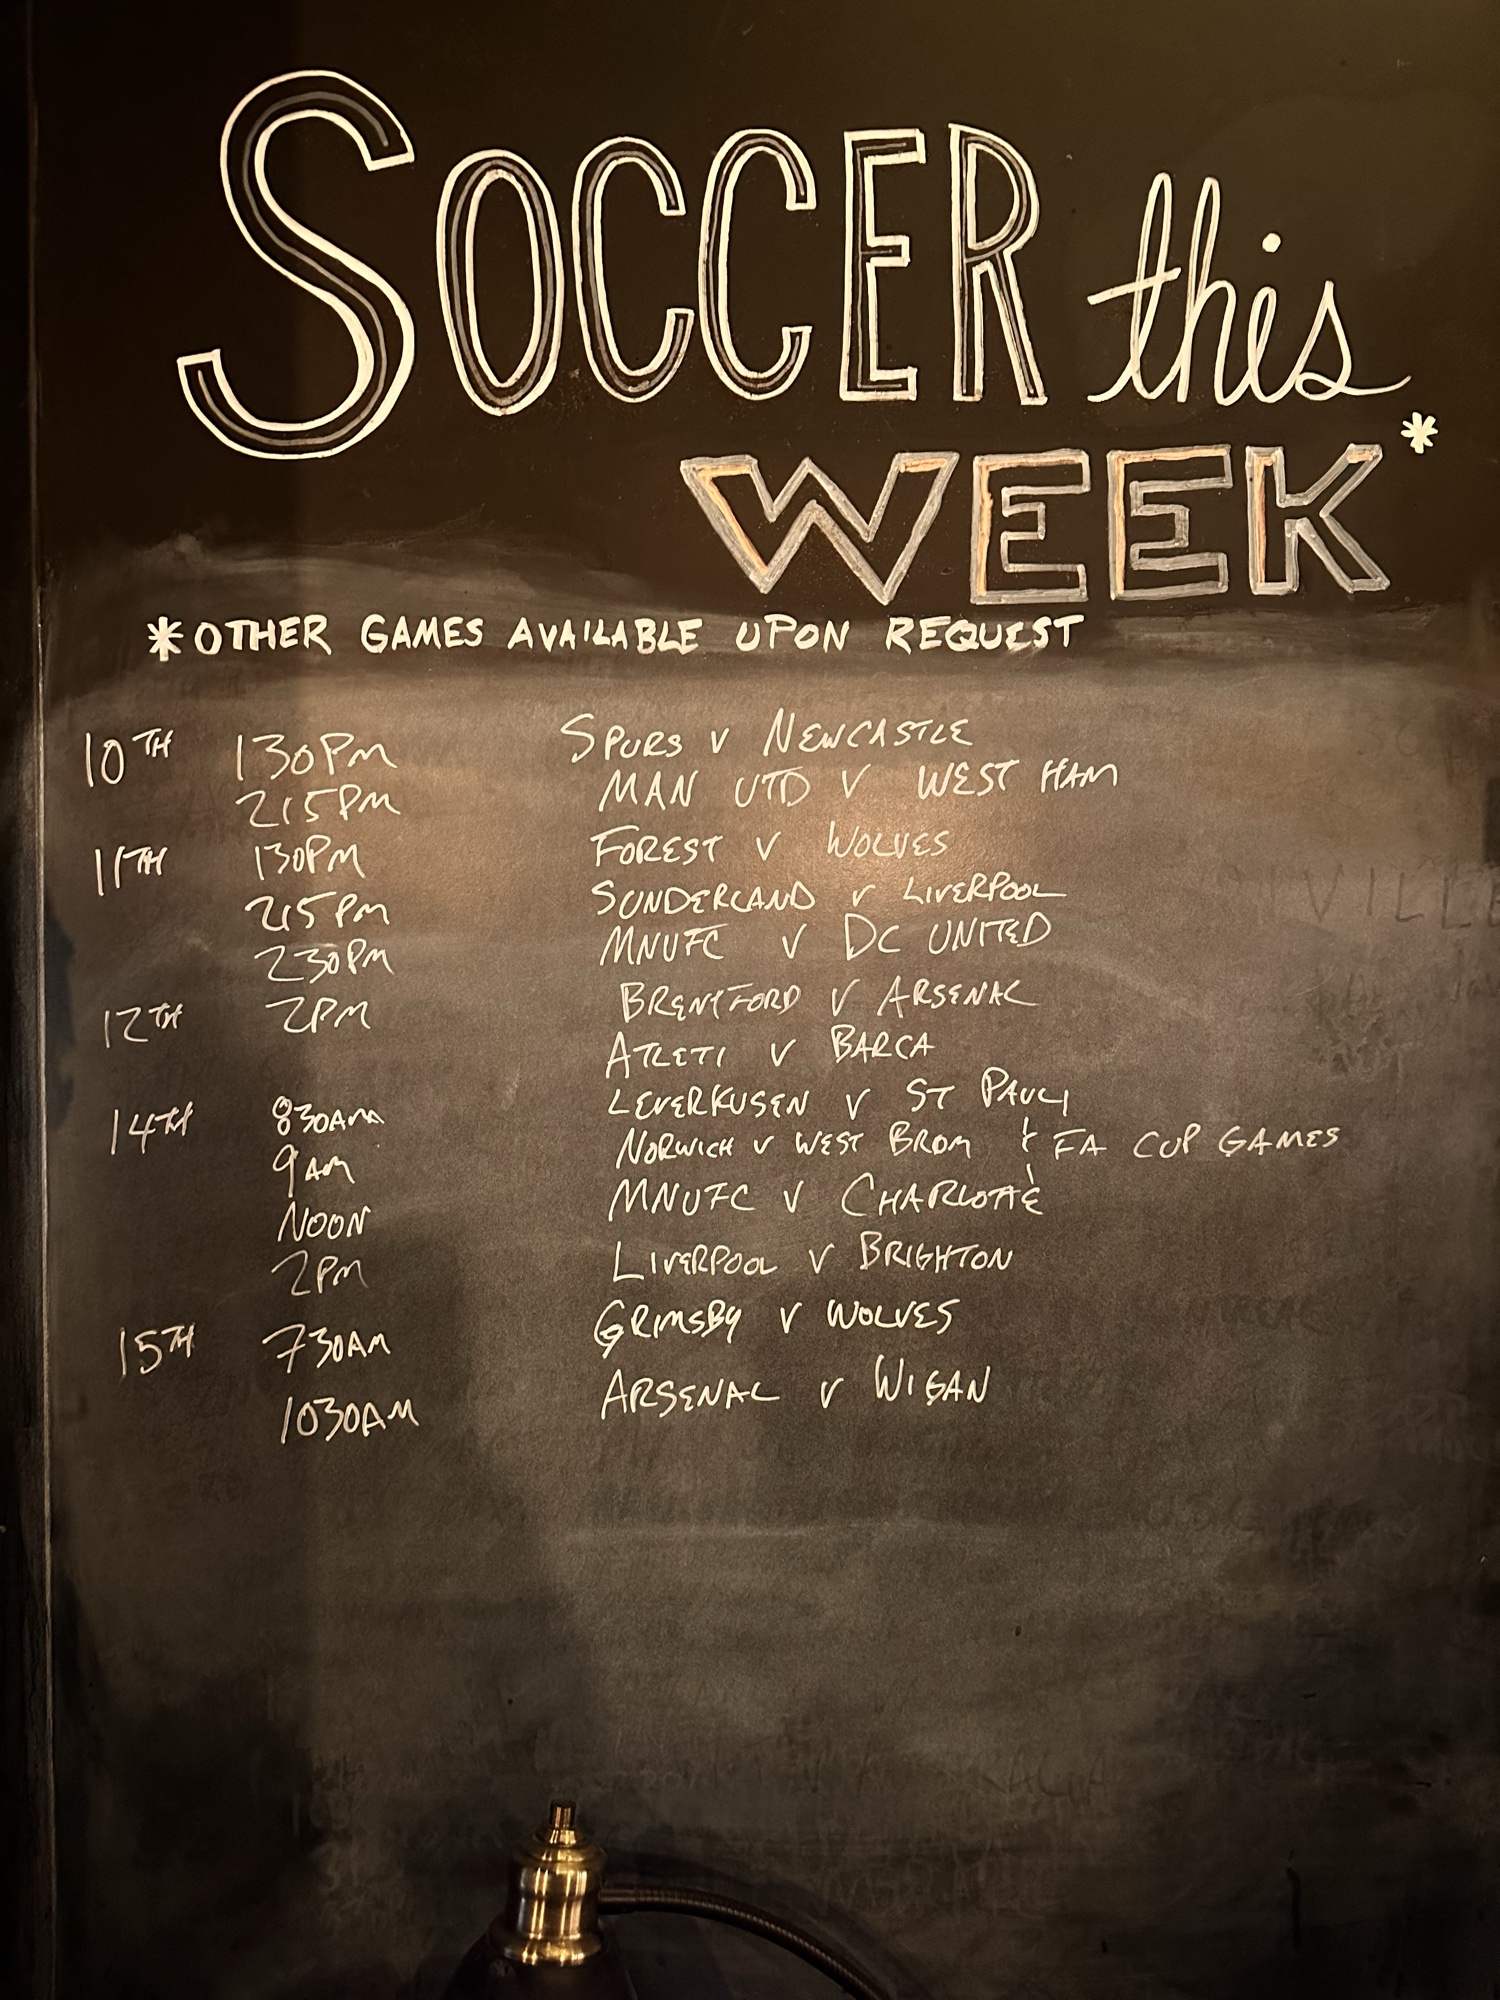 SOCCER this
WEEK*
*OTHER GAMES AVAILABLE UPON REQUEST
10TH 130PM SPURS V NEWCASTLE
215PM MAN UTD V WEST HAM
11TH 130PM FOREST V WOLVES
215PM SUNDERLAND V LIVERPOOL
230PM MNUFC V DC UNITED
12TH 2PM BRENTFORD V ARSENAL
ATLETI V BARCA
14TH 830AM LEVERKUSEN V ST PAULI
9AM NORWICH V WEST BROM & FA CUP GAMES
NOON MNUFC V CHARLOTTE
2PM LIVERPOOL V BRIGHTON
15TH 730AM GRIMSBY V WOLVES
1030AM ARSENAL V WIGAN